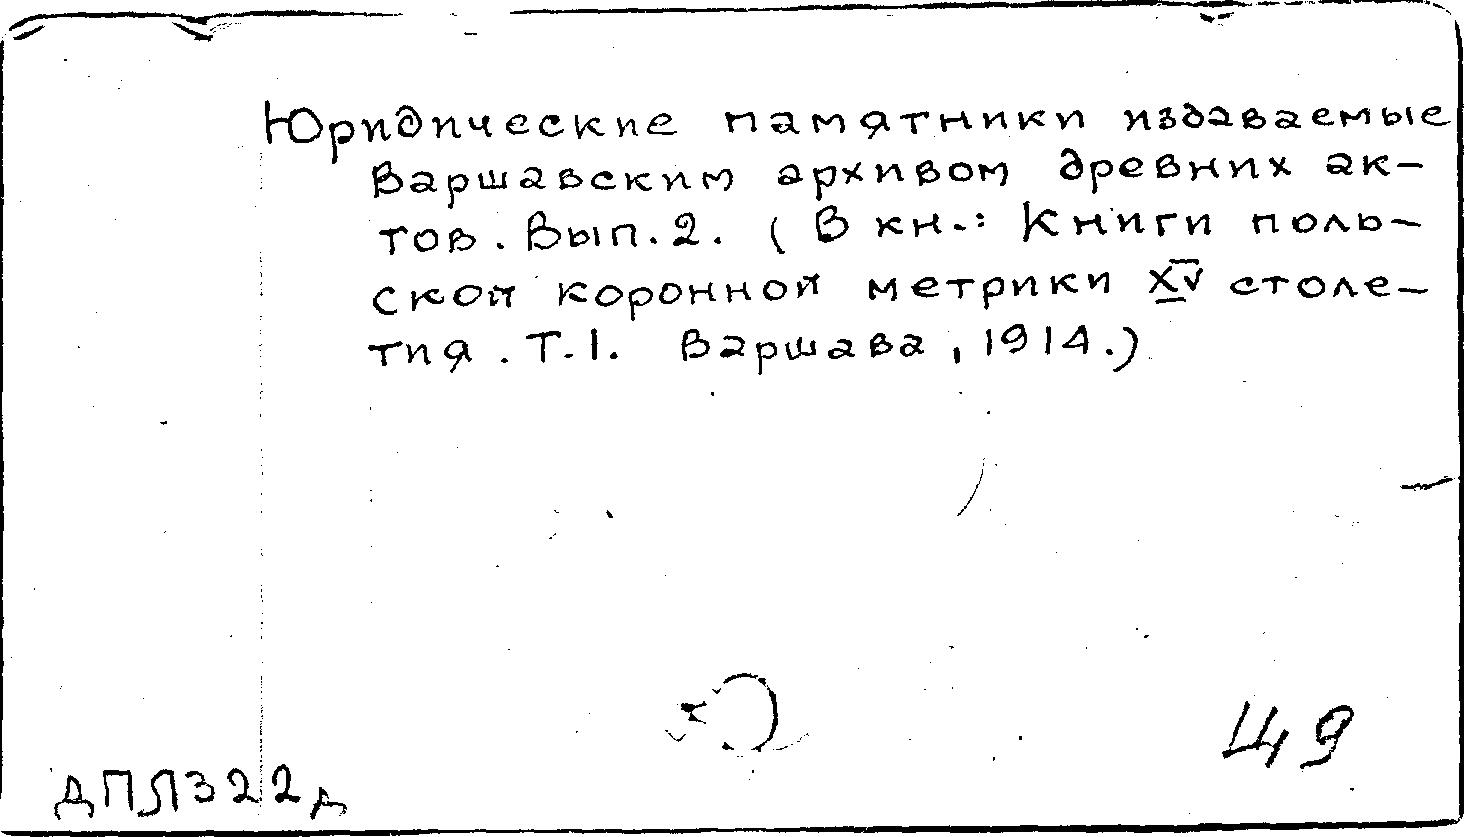 Юридические памятники издаваемые
Варшавским архивом древних ак-
тов. Вып. 2. (В кн.: Книги поль-
ской коронной метрики XV столе-
тия. Т. 1. Варшава, 1914.)
Щ 9
ДПЛ322д